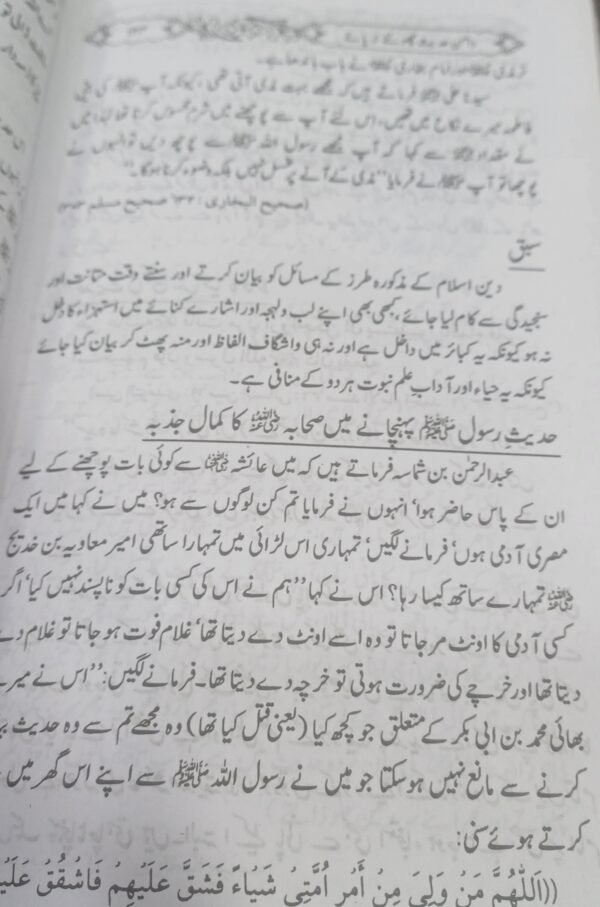 ترمذی ﷫ اور امام بخاری ﷫ نے باب باندھا ہے۔
سیدنا علی ؓ فرماتے ہیں کہ مجھے بہت مذی آتی تھی، کیونکہ آپ ﷺ کی بیٹی
فاطمہ میرے نکاح میں تھیں، اس لئے آپ سے پوچھنے میں شرم محسوس کرتا تھا لہٰذا میں
نے مقداد ؓ سے کہا کہ آپ مجھے رسول اللہ ﷺ سے پوچھ دیں تو انہوں نے
پوچھا تو آپ ﷺ نے فرمایا ”مذی کے آنے پر غسل نہیں بلکہ وضوء کرنا ہوگا۔“
(صحیح البخاری: ۱۳۲ صحیح مسلم
سبق
دین اسلام کے مذکورہ طرز کے مسائل کو بیان کرتے اور سنتے وقت متانت اور
سنجیدگی سے کام لیا جائے، کبھی بھی اپنے لب ولہجہ اور اشارے کنائے میں استہزاء کا دخل
نہ ہو کیونکہ یہ کبائر میں داخل ہے اور نہ ہی واشگاف الفاظ اور منہ پھٹ کر بیان کیا جائے
کیونکہ یہ حیاء اور آدابِ علم نبوت ہر دو کے منافی ہے۔
حدیثِ رسول ﷺ پہنچانے میں صحابہ ؓ کا کمال جذبہ
عبدالرحمٰن بن شماسہ فرماتے ہیں کہ میں عائشہ ؓ سے کوئی بات پوچھنے کے لیے
ان کے پاس حاضر ہوا‘ انہوں نے فرمایا تم کن لوگوں سے ہو؟ میں نے کہا میں ایک
مصری آدمی ہوں‘ فرمانے لگیں‘ تمہاری اس لڑائی میں تمہارا ساتھی امیر معاویہ بن خدیج
ؓ تمہارے ساتھ کیسا رہا؟ اس نے کہا ”ہم نے اس کی کسی بات کو ناپسند نہیں کیا‘ اگر
کسی آدمی کا اونٹ مر جاتا تو وہ اسے اونٹ دے دیتا تھا‘ غلام فوت ہو جاتا تو غلام دے
دیتا تھا اور خرچے کی ضرورت ہوتی تو خرچہ دے دیتا تھا۔ فرمانے لگیں: ”اس نے میرے
بھائی محمد بن ابی بکر کے متعلق جو کچھ کیا (یعنی قتل کیا تھا) وہ مجھے تم سے وہ حدیث
کرنے سے مانع نہیں ہوسکتا جو میں نے رسول اللہ ﷺ سے اپنے اس گھر میں
کرتے ہوئے سنی:
((اَللّٰھُمَّ مَنْ وَلِيَ مِنْ أَمْرِ أُمَّتِيْ شَيْئاً فَشَقَّ عَلَيْهِمْ فَاشْقُقْ